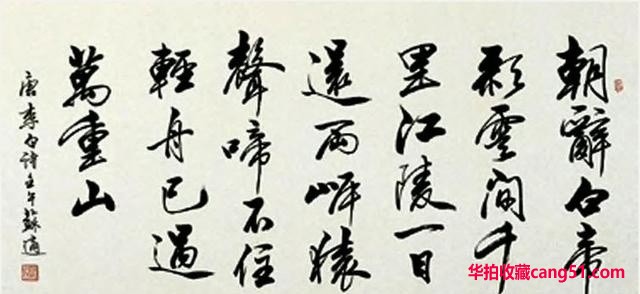 朝辭白帝
彩雲間千
里江陵一日
還兩岸猿
聲啼不住
輕舟已過
萬重山
唐李白詩壬午蘇適
华拍收藏cang51.com